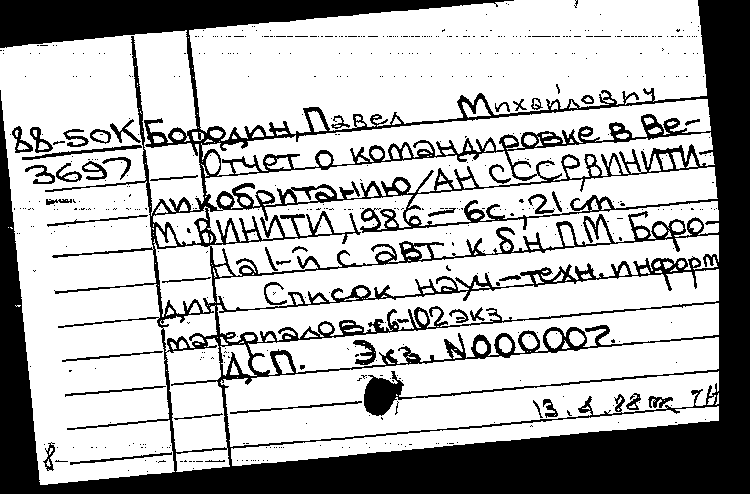 88-50К Бородин, Павел Михайлович
3697 Отчет о командировке в Ве-
ликобританию / АН СССР, ВИНИТИ.-
М.: ВИНИТИ, 1986.- 6с.; 21 cm.
На 1-й с. авт.: к.б.н. П.М. Боро-
дин. Список науч.-техн. информ
материалов: с.6-102 экз.
ДСП. Экз. N000007.
88
8